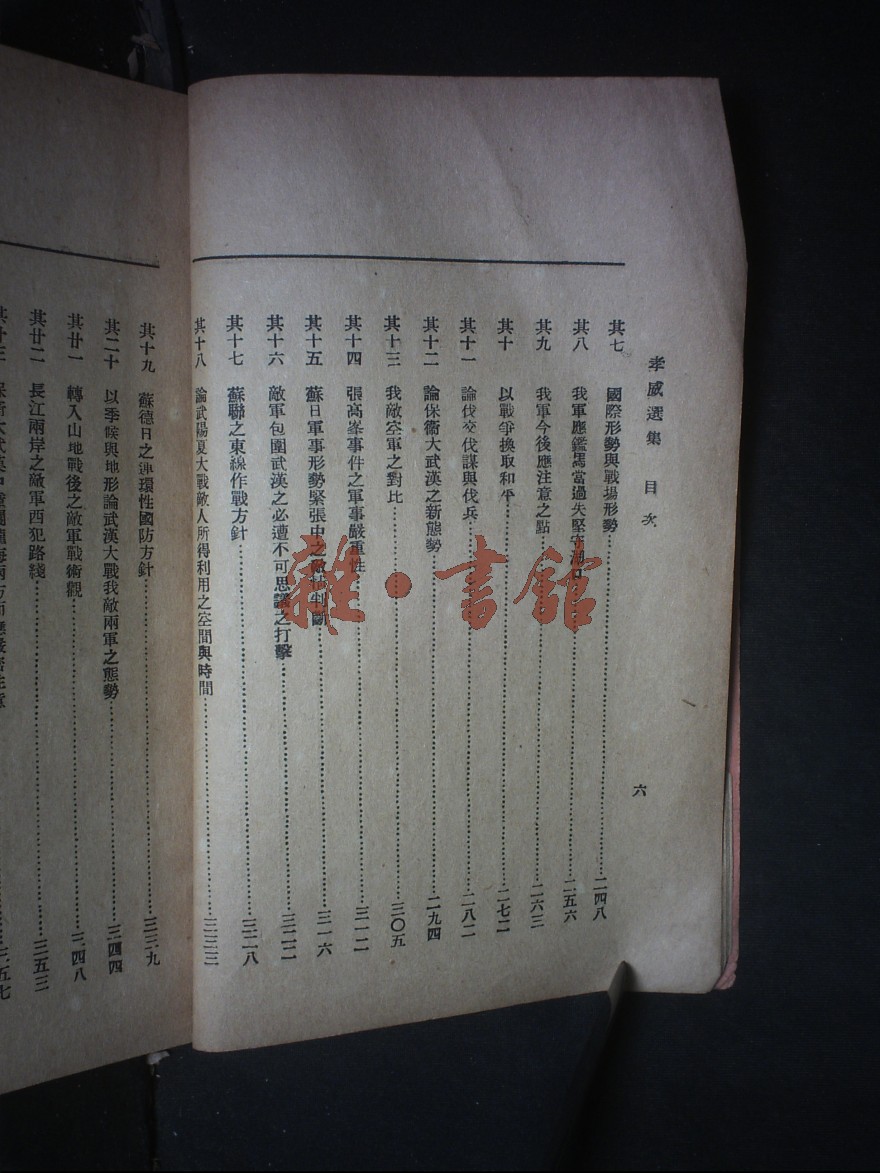 孝威選集 目次
六
其七 國際形勢與戰場形勢 二四八
其八 我軍應鑑馬當過失堅守湖口 二五六
其九 我軍今後應注意之點 二六三
其十 以戰爭換取和平 二七二
其十一 論伐交伐謀與伐兵 二八二
其十二 論保衛大武漢之新態勢 二九四
其十三 我敵空軍之對比 三〇五
其十四 張高峯事件之軍事嚴重性 三一二
其十五 蘇日軍事形勢緊張中之敵情判斷 三一六
其十六 敵軍包圍武漢之必遭不可思議之打擊 三二二
其十七 蘇聯之東線作戰方針 三二八
其十八 論武陽夏大戰敵人所得利用之空間與時間 三三三
其十九 蘇德日之連環性國防方針 三三九
其二十 以季候與地形論武漢大戰我敵兩軍之態勢 三四四
其廿一 轉入山地戰後之敵軍戰術觀 三四八
其廿二 長江兩岸之敵軍西犯路綫 三五三
三五七
雜·書館